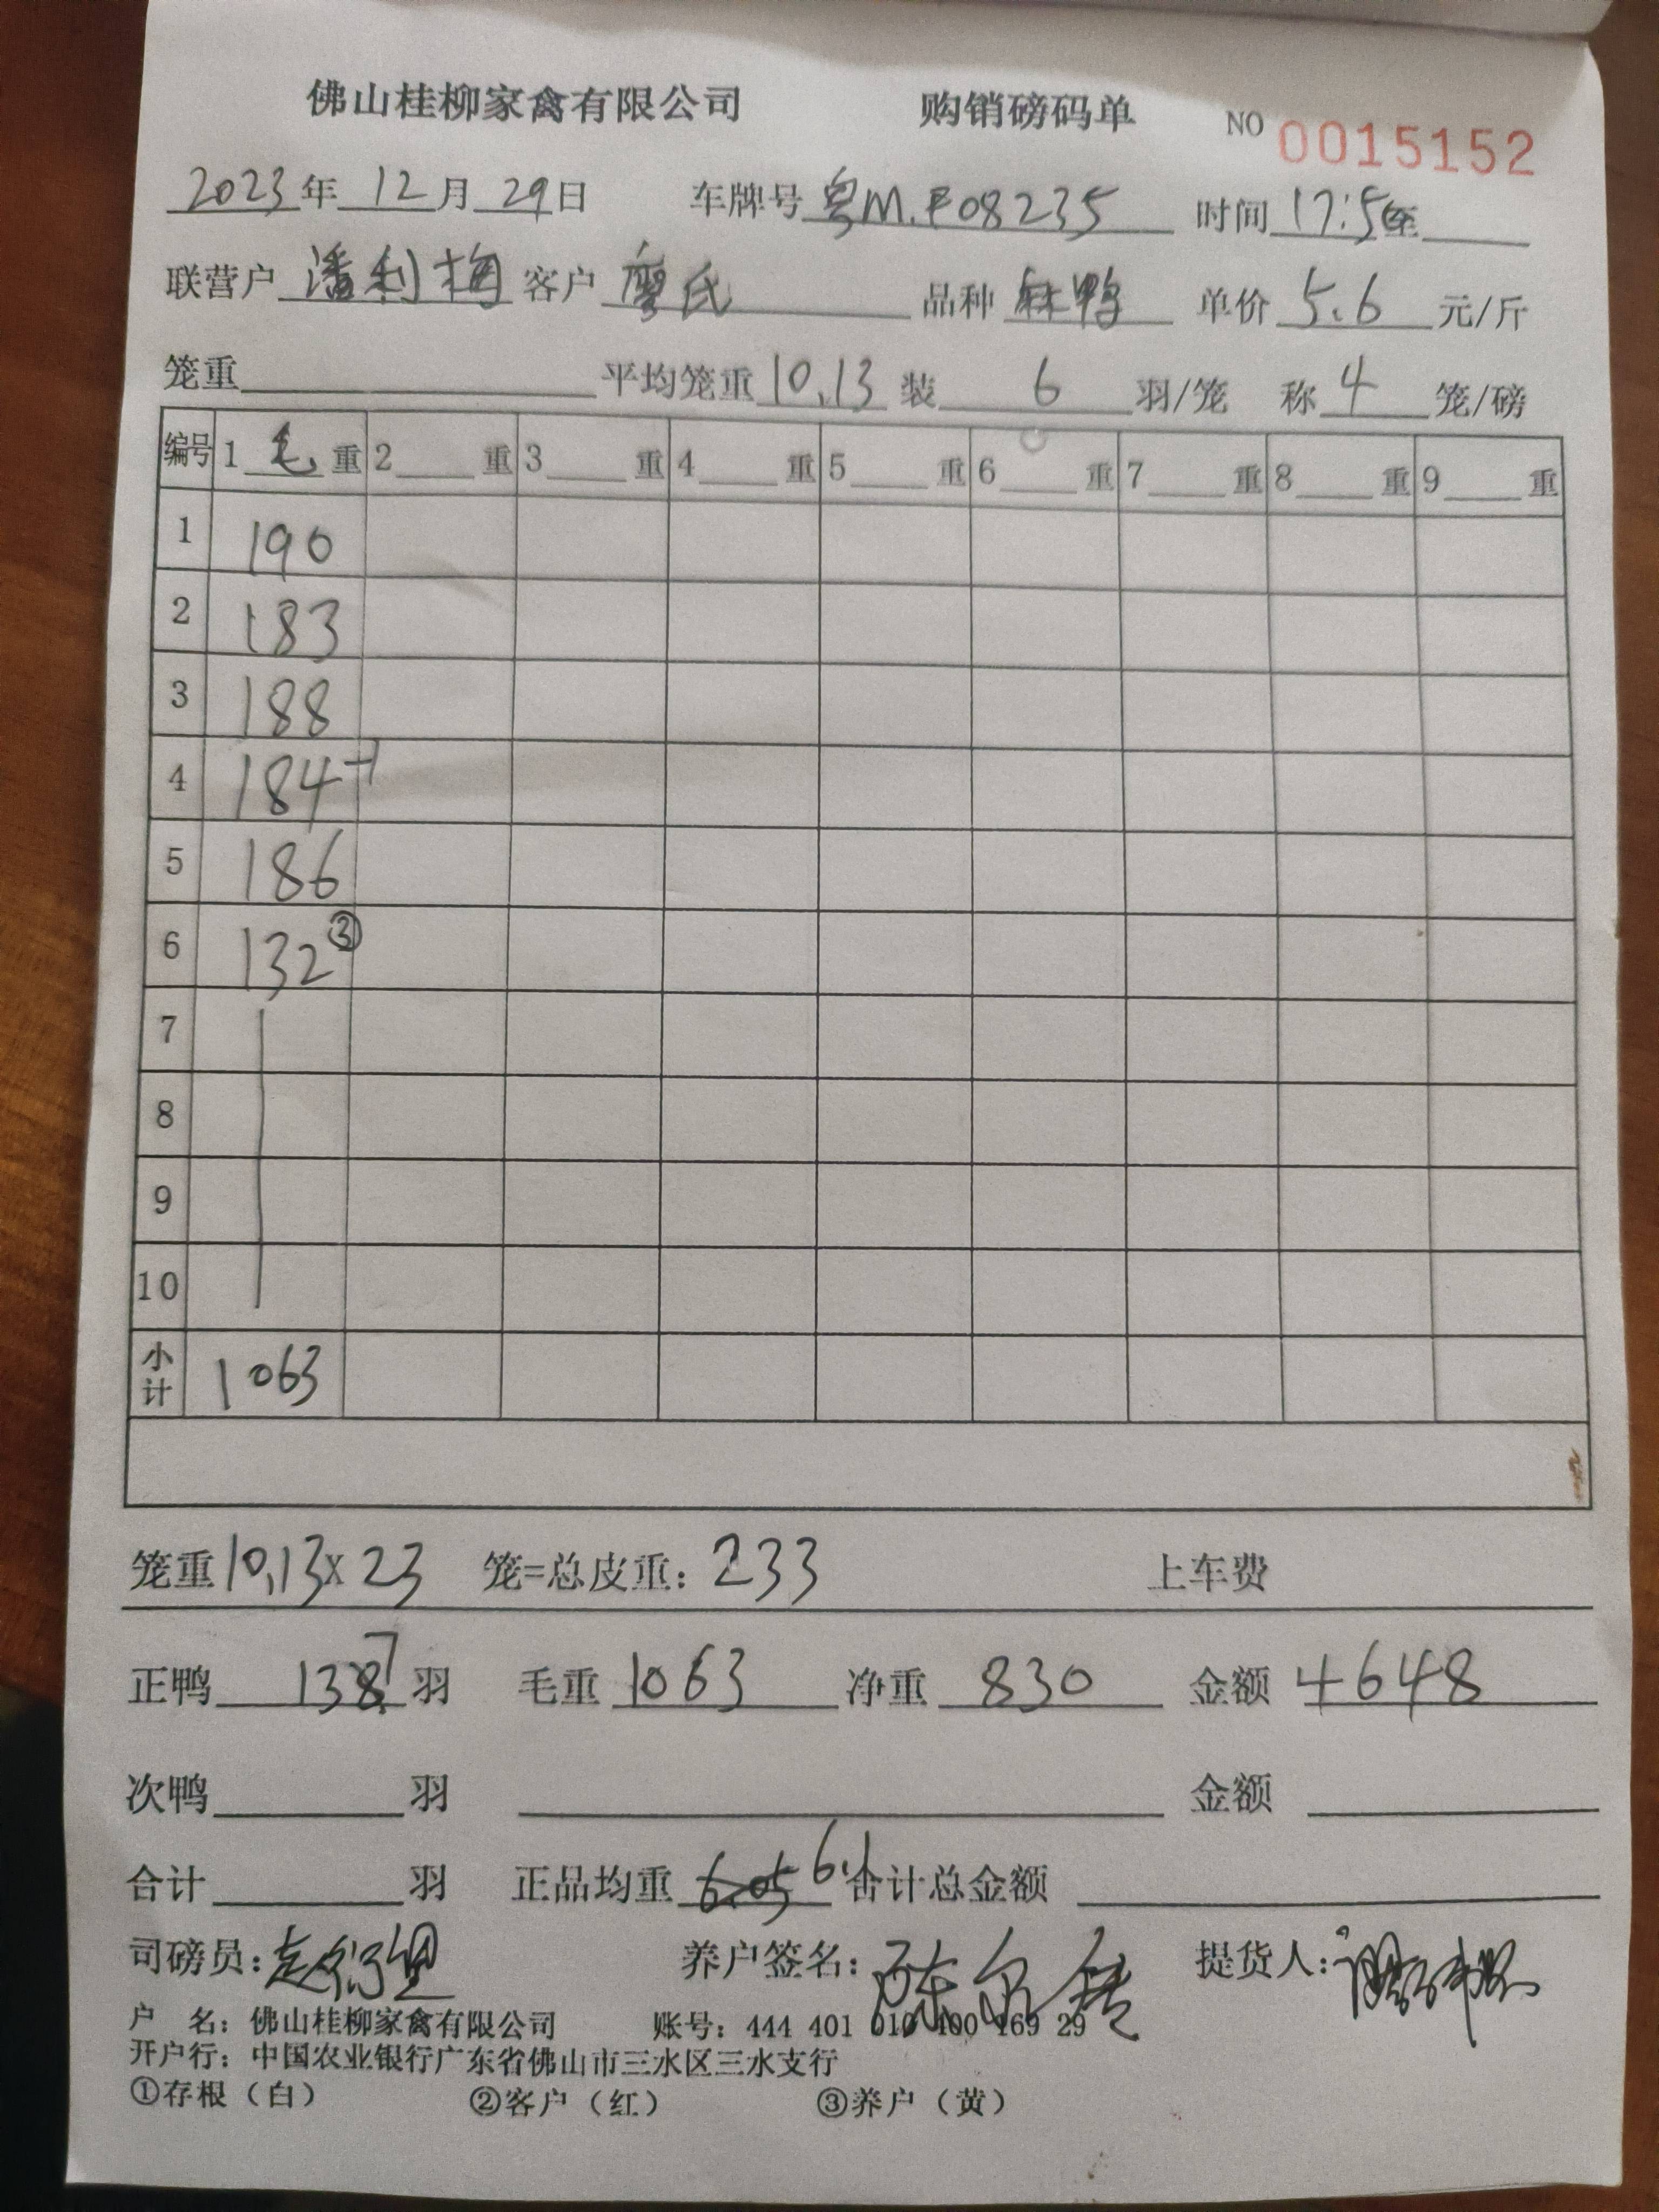 佛山桂柳家禽有限公司 购销磅码单 NO 0015152
2023年12月29日 车牌号粤M.F08235 时间17:50至
联营户潘利梅 客户廖氏 品种麻鸭 单价5.6元/斤
笼重 平均笼重10.13 装6羽/笼 称4笼/磅
编号 1毛重 2重 3重 4重 5重 6重 7重 8重 9重
1 190
2 183
3 188
4 184-1
5 186
6 132③
7
8
9
10
小计 1063
笼重10.13X23 笼=总皮重：233 上车费
正鸭137羽 毛重1063 净重830 金额4648
次鸭 羽 金额
合计 羽 正品均重6.05 6.1 合计总金额
司磅员： 养户签名： 提货人：
户 名：佛山桂柳家禽有限公司 账号：444 401 010 400 169 29
开户行：中国农业银行广东省佛山市三水区三水支行
①存根（白） ②客户（红） ③养户（黄）